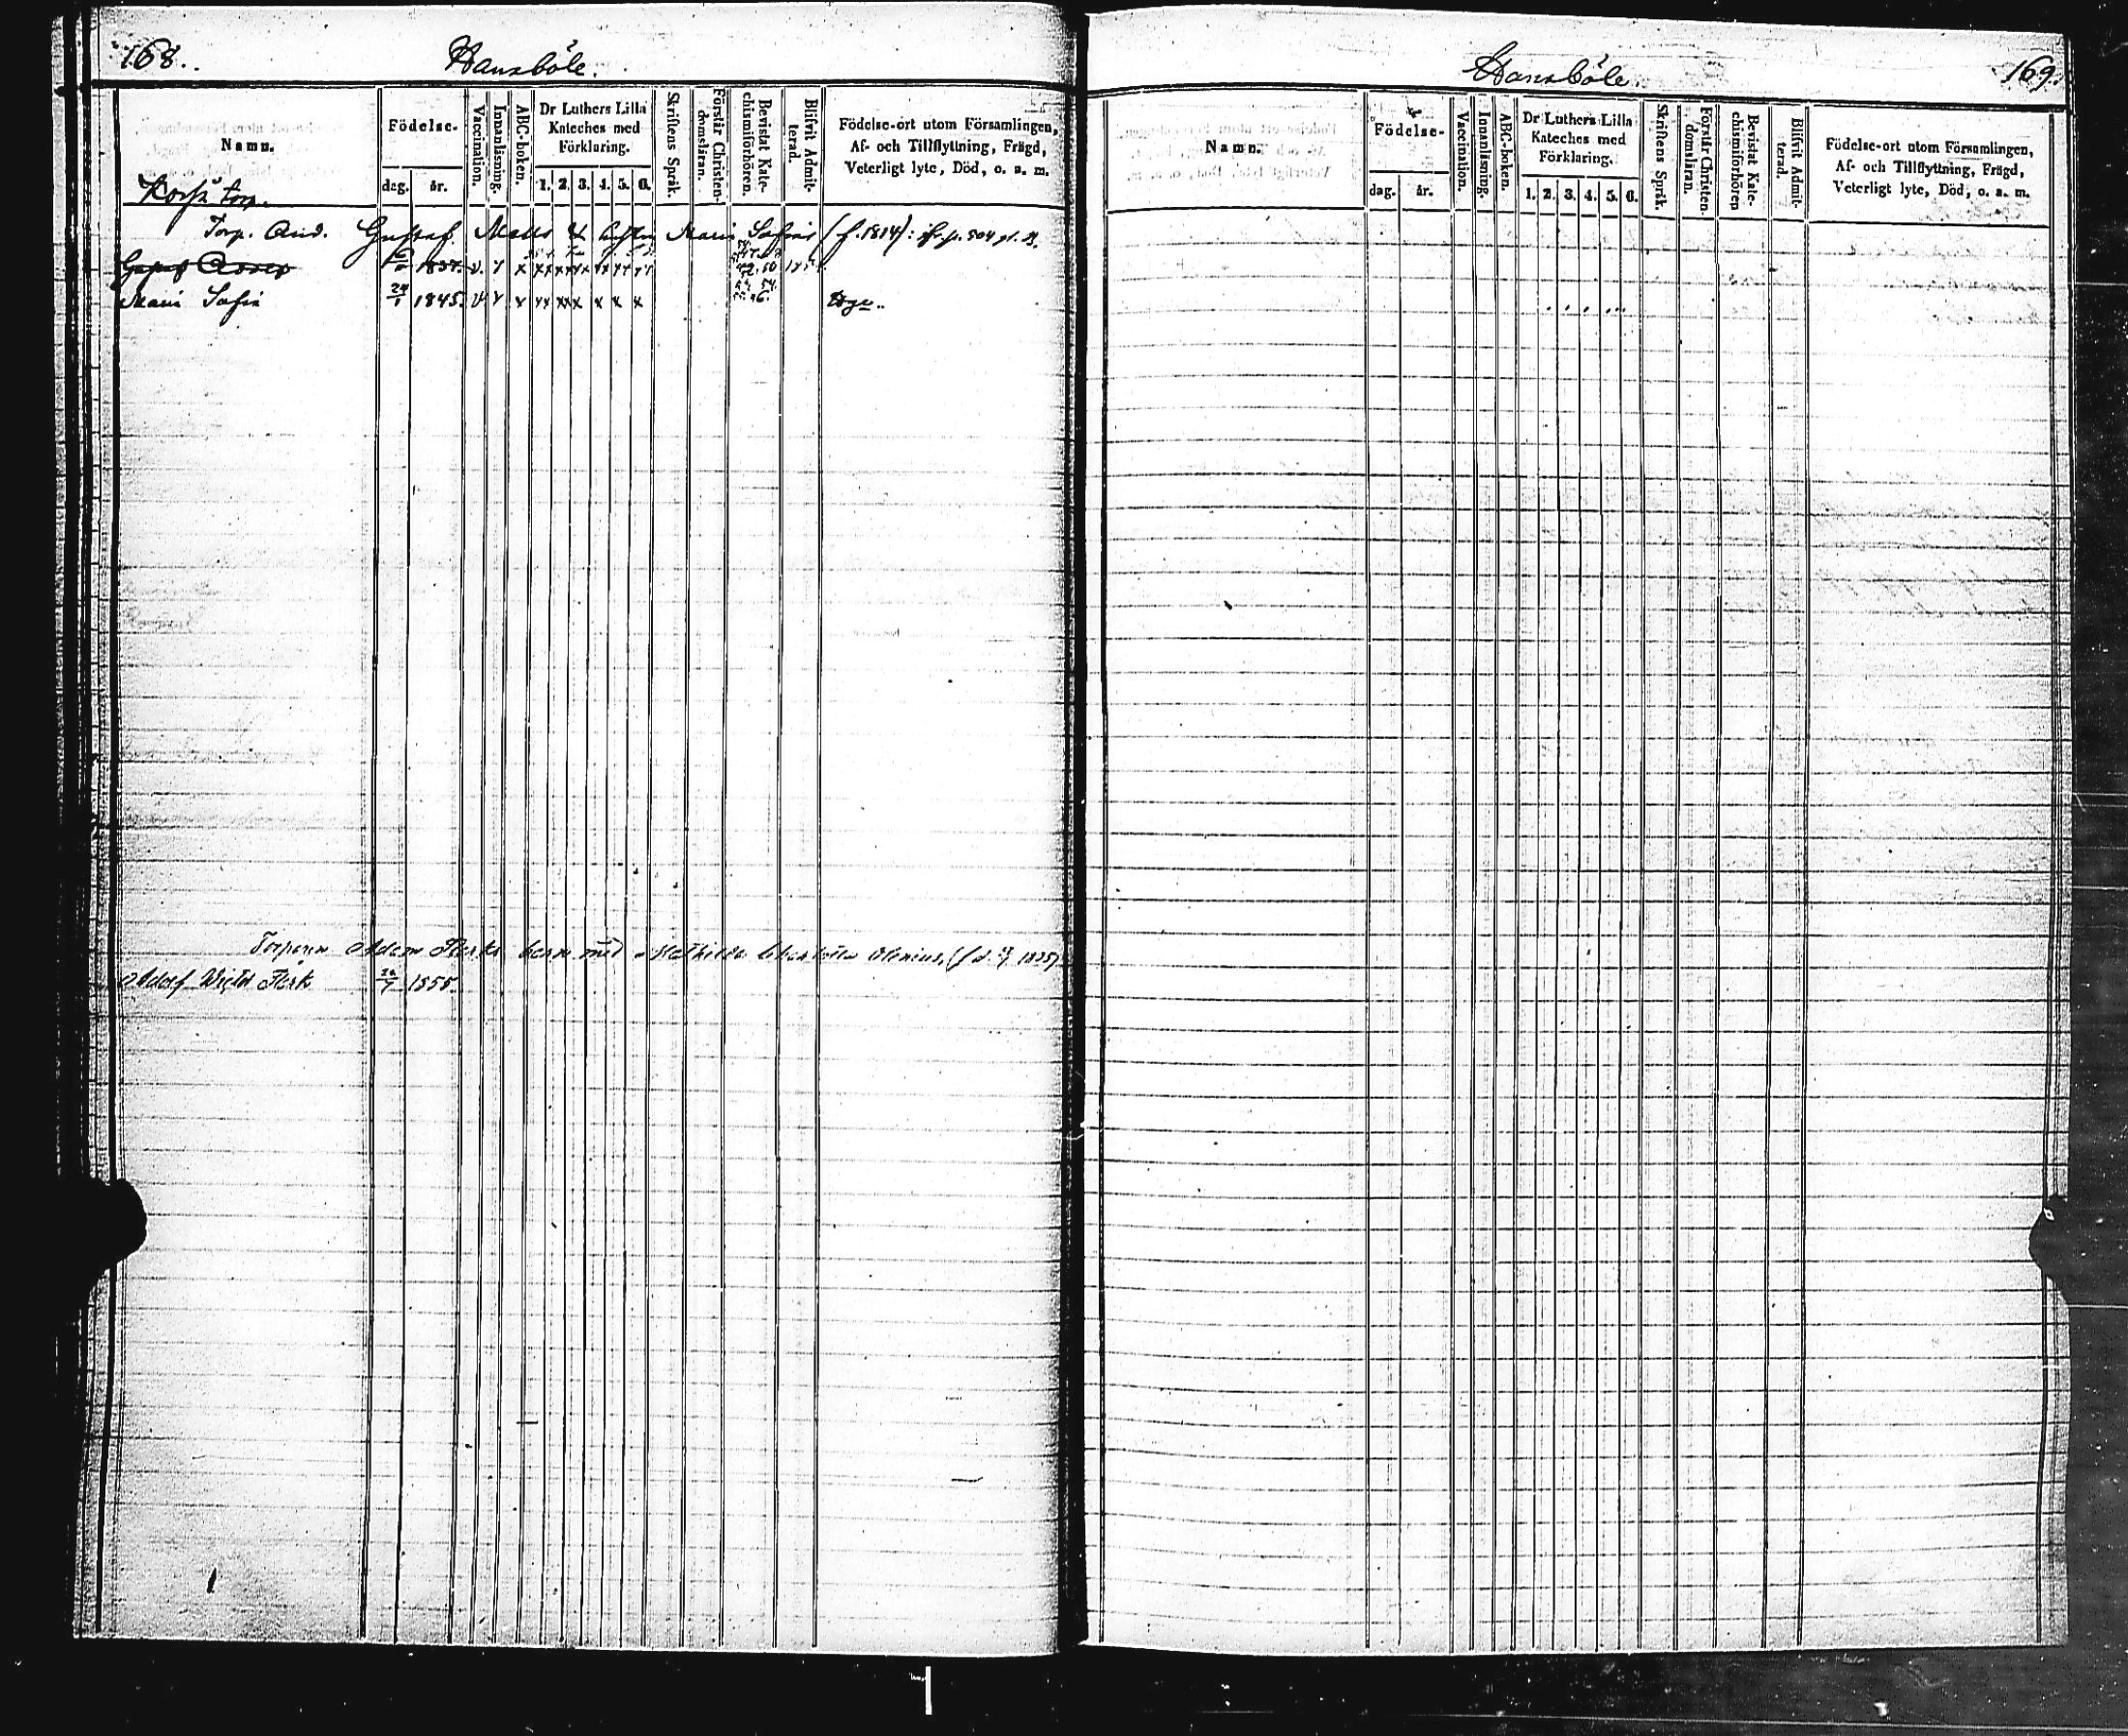 168.
Hansböle.
Namn.
Födelse-
dag.
år.
Vaccination.
Innanläsning.
ABC-boken.
Dr Luthers Lilla
Kateches med
Förklaring.
1. 2. 3. 4. 5. 6.
Skriftens Språk.
Förstår Christen-
domsläran.
Bevistat Kate-
chismiförhören.
Blifvit Admit-
terad.
Födelse-ort utom Församlingen,
Af- och Tillflyttning, Frägd,
Veterligt lyte, Död, o. s. m.
torp.
Torp. And. Gustaf Matts & hustru Maria Sofias (f. 1814):
1837. v. x x x x x x x x
Maria Sofia 24/1 1845. v x x x x x x x x
Torparen Adam barn med Mathilda Olenius, 1825)
Adolf 1855.
Hansböle.
169.
Namn.
Födelse-
dag.
år.
Vaccination.
Innanläsning.
ABC-boken.
Dr Luthers Lilla
Kateches med
Förklaring.
1. 2. 3. 4. 5. 6.
Skriftens Språk.
Förstår Christen-
domsläran.
Bevistat Kate-
chismiförhören
Blifvit Admit-
terad.
Födelse-ort utom Församlingen,
Af- och Tillflyttning, Frägd,
Veterligt lyte, Död, o. s. m.